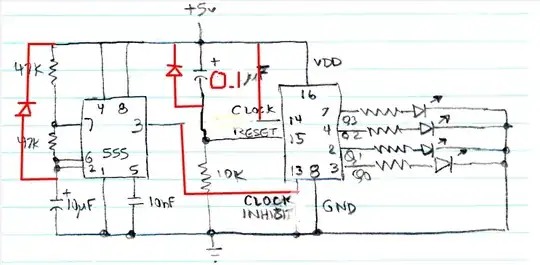 +5v
47K
47K
4 8
7
3
555
6
2
1
5
+
10µF
10nF
+
0.1 µF
10K
CLOCK
RESET
VDD
16
14
15
13 8 3
7
4
2
Q3
Q2
Q1
Q0
CLOCK
INHIBIT
GND